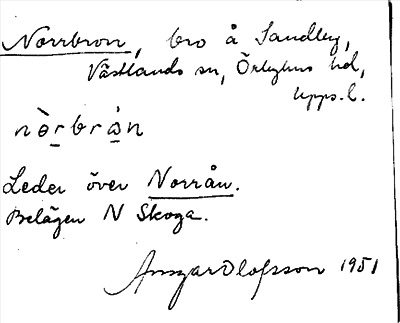 Norrbron, bro å Sandby,
Västlands sn, Örbyhus hd,
Upps. l.
nòrbrån
Leder över Norrån.
Belägen N Skoga.
Ansgar Olofsson 1951